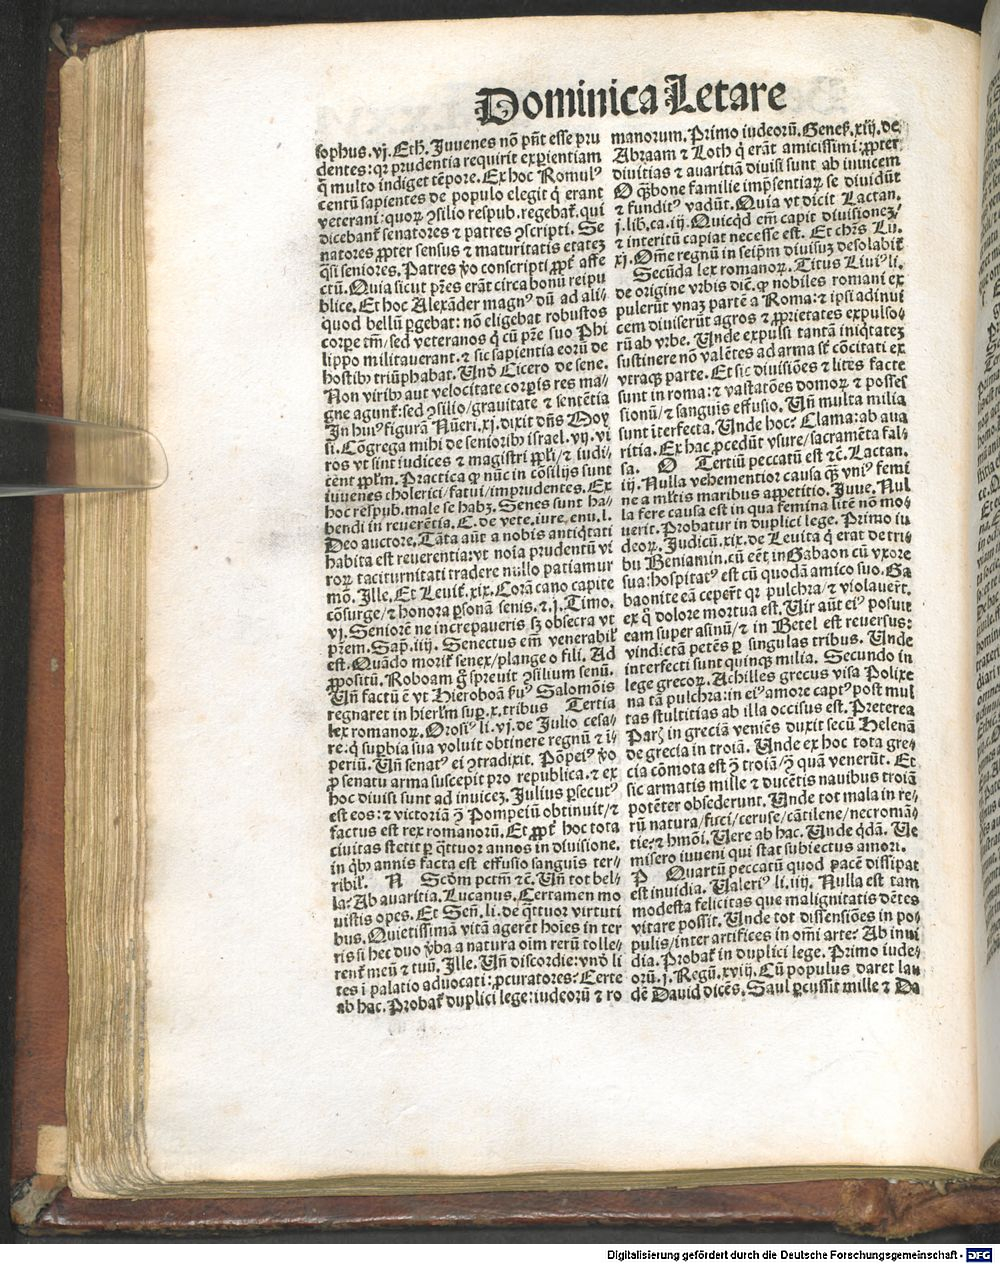 Dominica Letare
sophus. vj. Eth. Juuenes nõ pñt esse pru
dentes: qꝛ prudentia requirit exꝑientiam
q̃ multo indiget tẽpore. Ex hoc Romulꝰ
centũ sapientes de populo elegit q̃ erant
veterani: quoꝝ ꝯsilio respub. regebat̃. qui
dicebant̃ senatores ⁊ patres ꝯscripti. Se
natores ꝓpter sensus ⁊ maturitatis etateꝫ
q̃si seniores. Patres ṽo conscripti ꝓpt̃ affe
ctũ. Quia sicut pr̃es erãt circa bonũ reipu
blice. Et hoc Alexãder magnꝰ dũ ad ali⸗
quod bellũ ꝑgebat: nõ eligebat robustos
corꝑe tm̃/ sed veteranos q̃ cũ pr̃e suo Phi
lippo militauerant. ⁊ sic sapientia eorũ de
hostibꝰ triũphabat. Vnde Cicero de sene.
Non viribꝰ aut velocitate corꝑis res ma⸗
gne agunt̃: sed ꝯsilio/ grauitate ⁊ sentẽtia
In huiꝰ figurã Nũeri. xj. dixit dñs Moy
si. Cõgrega mihi de senioribꝰ israel. vij. vi
ros vt sint iudices ⁊ magistri ppl̃i/ ⁊ iudi⸗
cent ppl̃m. Practica q̃ nũc in cõsilijs sunt
iuuenes cholerici/ fatui/ imprudentes. Ex
hoc respub. male se habꝫ. Senes sunt ha⸗
bendi in reuerẽtia. C. de vete. iure. enu. l.
Deo auctore. Tãta aũt a nobis antiq̃tati
habita est reuerentia: vt noĩa prudentũ vi
roꝝ taciturnitati tradere nullo patiamur
mõ. Ille. Et Leuit̃. xix. Corã cano capite
cõsurge/ ⁊ honora ꝑsonã senis. ⁊. j. Timo.
vj. Seniorẽ ne increpaueris sꝫ obsecra vt
pr̃em. Sap̃. iiij. Senectus em̃ venerabil̃
est. Quãdo morit̃ senex/ plange o fili. Ad
ꝓpositũ. Roboam q̃ spreuit ꝯsilium senũ.
Vñ factũ ẽ vt Hieroboã fuꝰ Salomõis
regnaret in hierl̃m suꝑ. x. tribus Tertia
lex romanoꝝ. Orosiꝰ li. vj. de Julio cesa⸗
re. q̃ suꝑbia sua voluit obtinere regnũ ⁊ ĩ⸗
periũ. Vñ senatꝰ ei ꝯtradixit. Põpeiꝰ ṽo
ꝓ senatu arma suscepit pro republica. ⁊ ex
hoc diuisi sunt ad inuiceꝫ. Julius ꝑsecutꝰ
est eos: ⁊ victoriã ꝯ̃ Pompeiũ obtinuit/ ⁊
factus est rex romanorũ. Et ꝓpt̃ hoc tota
ciuitas stetit ꝑ q̃ttuor annos in diuisione.
in q̃bꝰ annis facta est effusio sanguis ter⸗
ribil̃. N Scdm pctm̃ ⁊c̃. Vñ tot bel⸗
la? Ab auaritia. Lucanus. Certamen mo
uistis opes. Et Señ. li. de q̃ttuor virtuti
bus. Quietissimã vitã agerẽt hoĩes in ter
ris si hec duo ṽba a natura oĩm rerũ tolle⸗
rent̃ meũ ⁊ tuũ. Ille. Vñ discordie: vnde li
tes ĩ palatio aduocati: ꝓcuratores? Certe
ab hac. Probat̃ duplici lege: iudeorũ ⁊ ro
manorum. Primo iudeorũ. Geneſ. xiij. de
Abraam ⁊ Loth q̃ erãt amicissimi: ꝓpter
diuitias ⁊ auaritiã diuisi sunt ab inuicem
O q̃ bone familie imp̃sentiaꝝ se diuidũt
⁊ funditꝰ vadũt. Quia vt dicit Lactan.
j. lib. ca. iij. Quicq̃d em̃ capit diuisioneꝫ/
⁊ interitũ capiat necesse est. Et chr̃s Lu.
xj. Om̃e regnũ in seip̃m diuisuꝫ desolabit̃
Secũda lex romanoꝝ. Titus Liuiꝰ li.
de origine vrbis dic̃. q̃ nobiles romani ex
pulerũt vnaꝫ partẽ a Roma: ⁊ ipsi adinui
cem diuiserũt agros ⁊ ꝓprietates expulso⸗
rũ ab vrbe. Unde expulsi tantã iniq̃tateꝫ
sustinere non valẽtes ad arma st̃ cõcitati ex
vtraqꝫ parte. Et sic diuisiões ⁊ lites facte
sunt in roma: ⁊ vastatões domoꝝ ⁊ posses
sionũ/ ⁊ sanguis effusio. Vñ multa milia
sunt ĩterfecta. Unde hoc? Clama: ab aua
ritia. Ex hac ꝓcedũt vsure/ sacramẽta fal⸗
sa. O Tertiũ peccatũ est ⁊c̃. Lactan.
iij. Nulla vehementior causa q̃ꝫ vniꝰ femi
ne a ml̃tis maribus appetitio. Juue. Nul
la fere causa est in qua femina litẽ nõ mo⸗
uerit. Probatur in duplici lege. Primo iu
deoꝝ. Judicũ. xix. de Leuita q̃ erat de tri⸗
bu Beniamin. cũ eẽt in Gabaon cũ vxore
sua: hospitatꝰ est cũ quodã amico suo. Ga
baonite eã ceper̃t qꝛ pulchra/ ⁊ violauer̃t.
ex q̃ dolore mortua est. Vir aũt eiꝰ posuit
eam super asinũ/ ⁊ in Betel est reuersus:
vindictã petẽs ꝑ singulas tribus. Unde
interfecti sunt quinqꝫ milia. Secundo in
lege grecoꝝ. Achilles grecus visa Polixe
na tã pulchra: in eiꝰ amore captꝰ post mul
tas stultitias ab illa occisus est. Preterea
Paris in greciã veniẽs duxit secũ Helenã
de grecia in troiã. Unde ex hoc tota gre⸗
cia cõmota est ꝯ̃ troiã/ ꝯ̃ quã venerũt. Et
sic armatis mille ⁊ ducẽtis nauibus troiã
potẽter obsederunt. Unde tot mala in re⸗
rũ natura/ fuci/ ceruse/ cãtilene/ necromã⸗
tie? ⁊ hm̃oi. Uere ab hac. Unde q̃dã. Ue
misero iuueni qui stat subiectus amori.
P Quartũ peccatũ quod pacẽ dissipat
est inuidia. Ualeriꝰ li. iiij. Nulla est tam
modesta felicitas que malignitatis dẽtes
vitare possit. Unde tot dissensiões in po⸗
pulis/ inter artifices in om̃i arte? Ab inui
dia. Probat̃ in duplici lege. Primo iude⸗
orũ. j. Regũ. xviij. Cũ populus daret lau
dẽ Dauid dicẽs. Saul ꝑcussit mille ⁊ Da
Digitalisierung gefördert durch die Deutsche Forschungsgemeinschaft - DFG